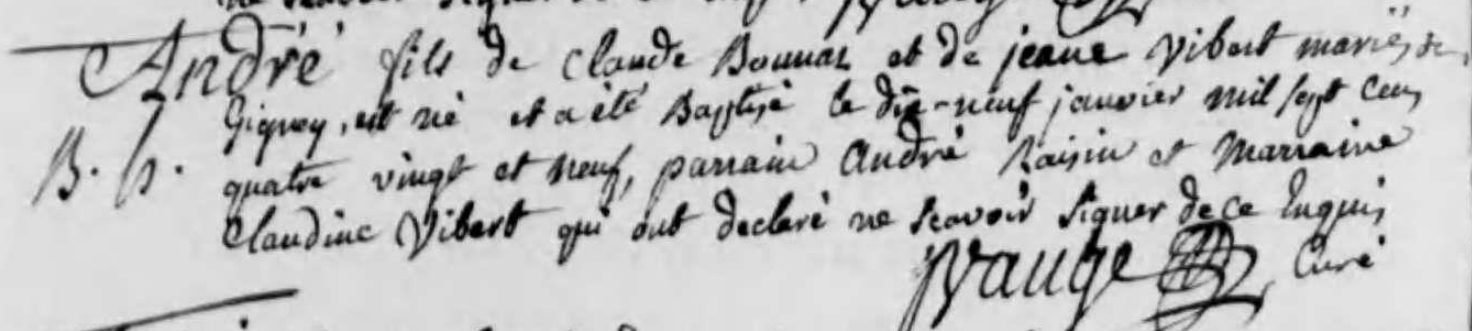 ne scavoir signer de ce
André fils de Claude Bonnaz et de jeane Vibert mariés, de
Gigney, est né et a été Baptisé le dix-neuf janvier mil sept cens
B. h. quatre vingt et neuf, parrain André Raisin et Marraine
Claudine Vibert qui ont declaré ne scavoir signer de ce Enquis,
Vauge Curé